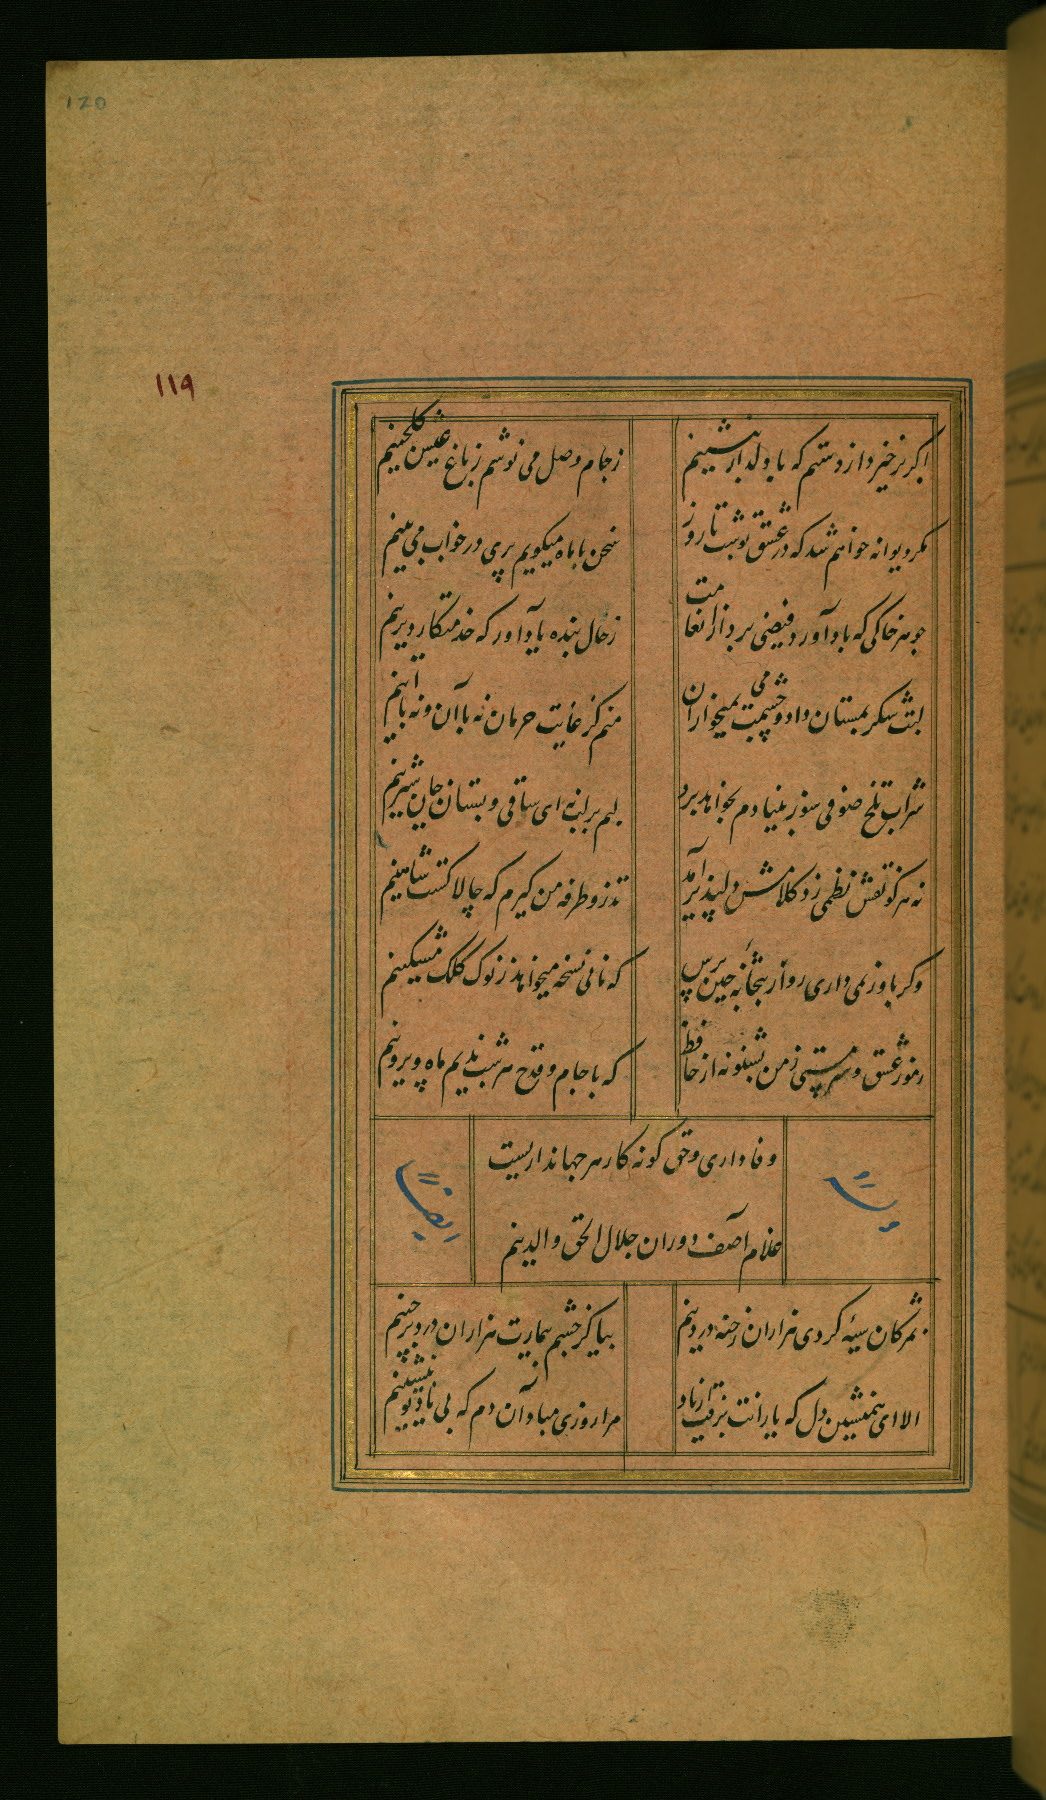 120
۱۱۹
اکر برخیزد از دستم که با دلدار بنشینم
زجام وصل می نوشم زباغ عیش کل چینم
مکر دیوانه خواهم شد که در عشق تو شب تا روز
سخن با ماه میکویم پری در خواب می بینم
چو هر خاکی که باد آورد فیضی برد از انعامت
زحال بنده یاد آور که خدمتکار دیرینم
لبت شکر بمستان داد و چشمت می بمیخواران
منم کز غایت حرمان نه با آن و نه با اینم
شراب تلخ صوفی سوز بنیادم بخواهد برد
لبم بر لب نه ای ساقی و بستان جان شیرینم
نه هر کو نقش نظمی زد کلامش دلپذیر آمد
تذرو طرفه من کیرم که چالاکست شاهینم
وکر باور نمی داری رو از بتخانه چین پرس
که مانی نسخه میخواهد زنوک کلک مشکینم
رموز عشق و سرمستی زمن بشنو نه از حافظ
که با جام و قدح هر شب ندیم ماه و پروینم
وفاداری و حق کو نه کار هر جهانداریست
غلام آصف دوران جلال الحق والدینم
وله
ایضا
بمژکان سیه کردی هزاران رخنه در دینم
بیا کز چشم بیمارت هزاران درد برچینم
الا ای همنشین دل که یارانت برفت از یاد
مرا روزی مباد آن دم که بی یاد تو بنشینم